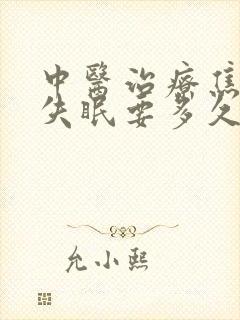 中醫治療焦
失眠要多久
允小熙